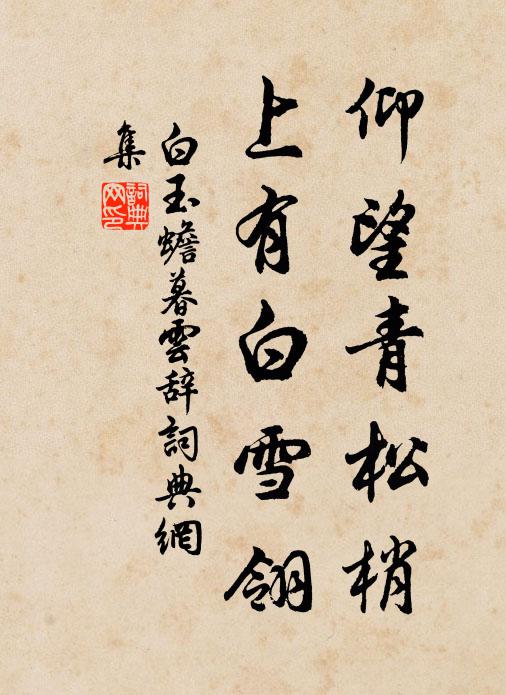 仰望青松梢
上有白雪翎
白玉蟾暮雲辞詞典網
集
詞典網印